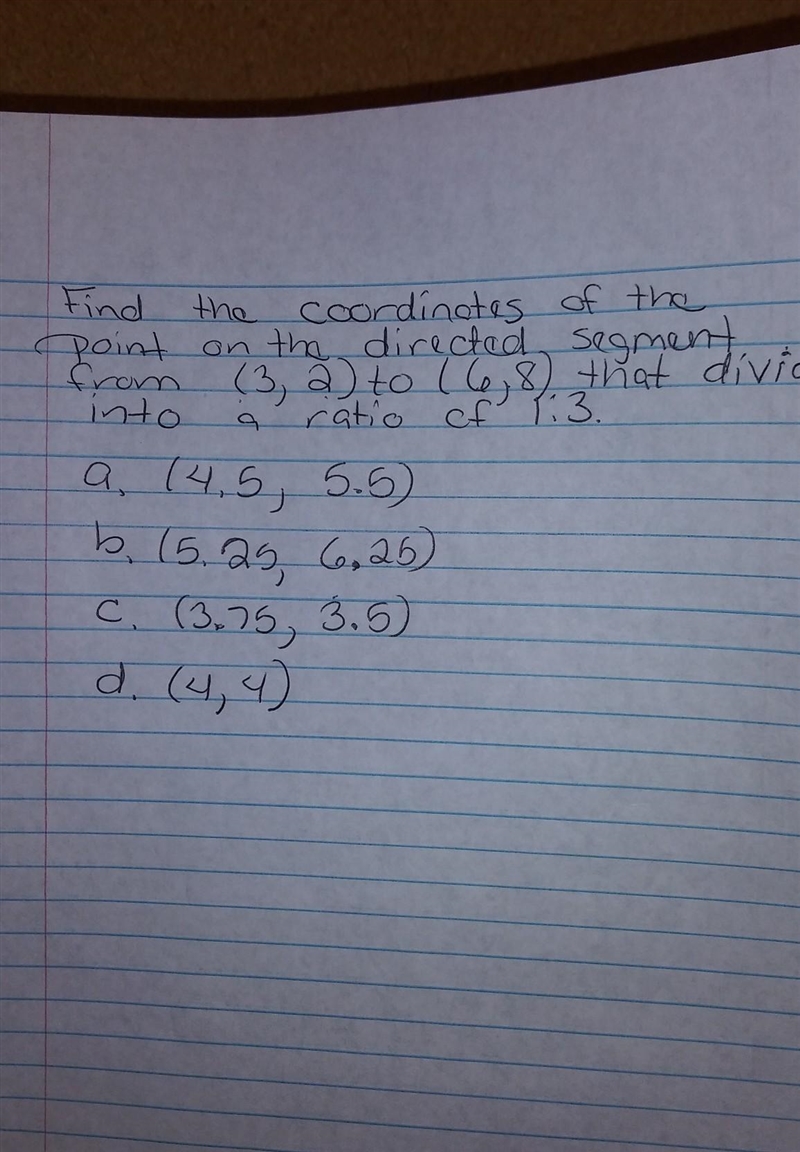 Find the coordinates of the
point on the directed segment
from (3, 2) to (6,8) that divid
into a ratio of 1:3.
a. (4.5, 5.5)
b. (5.25, 6.25)
c. (3.75, 3.5)
d. (4,4)